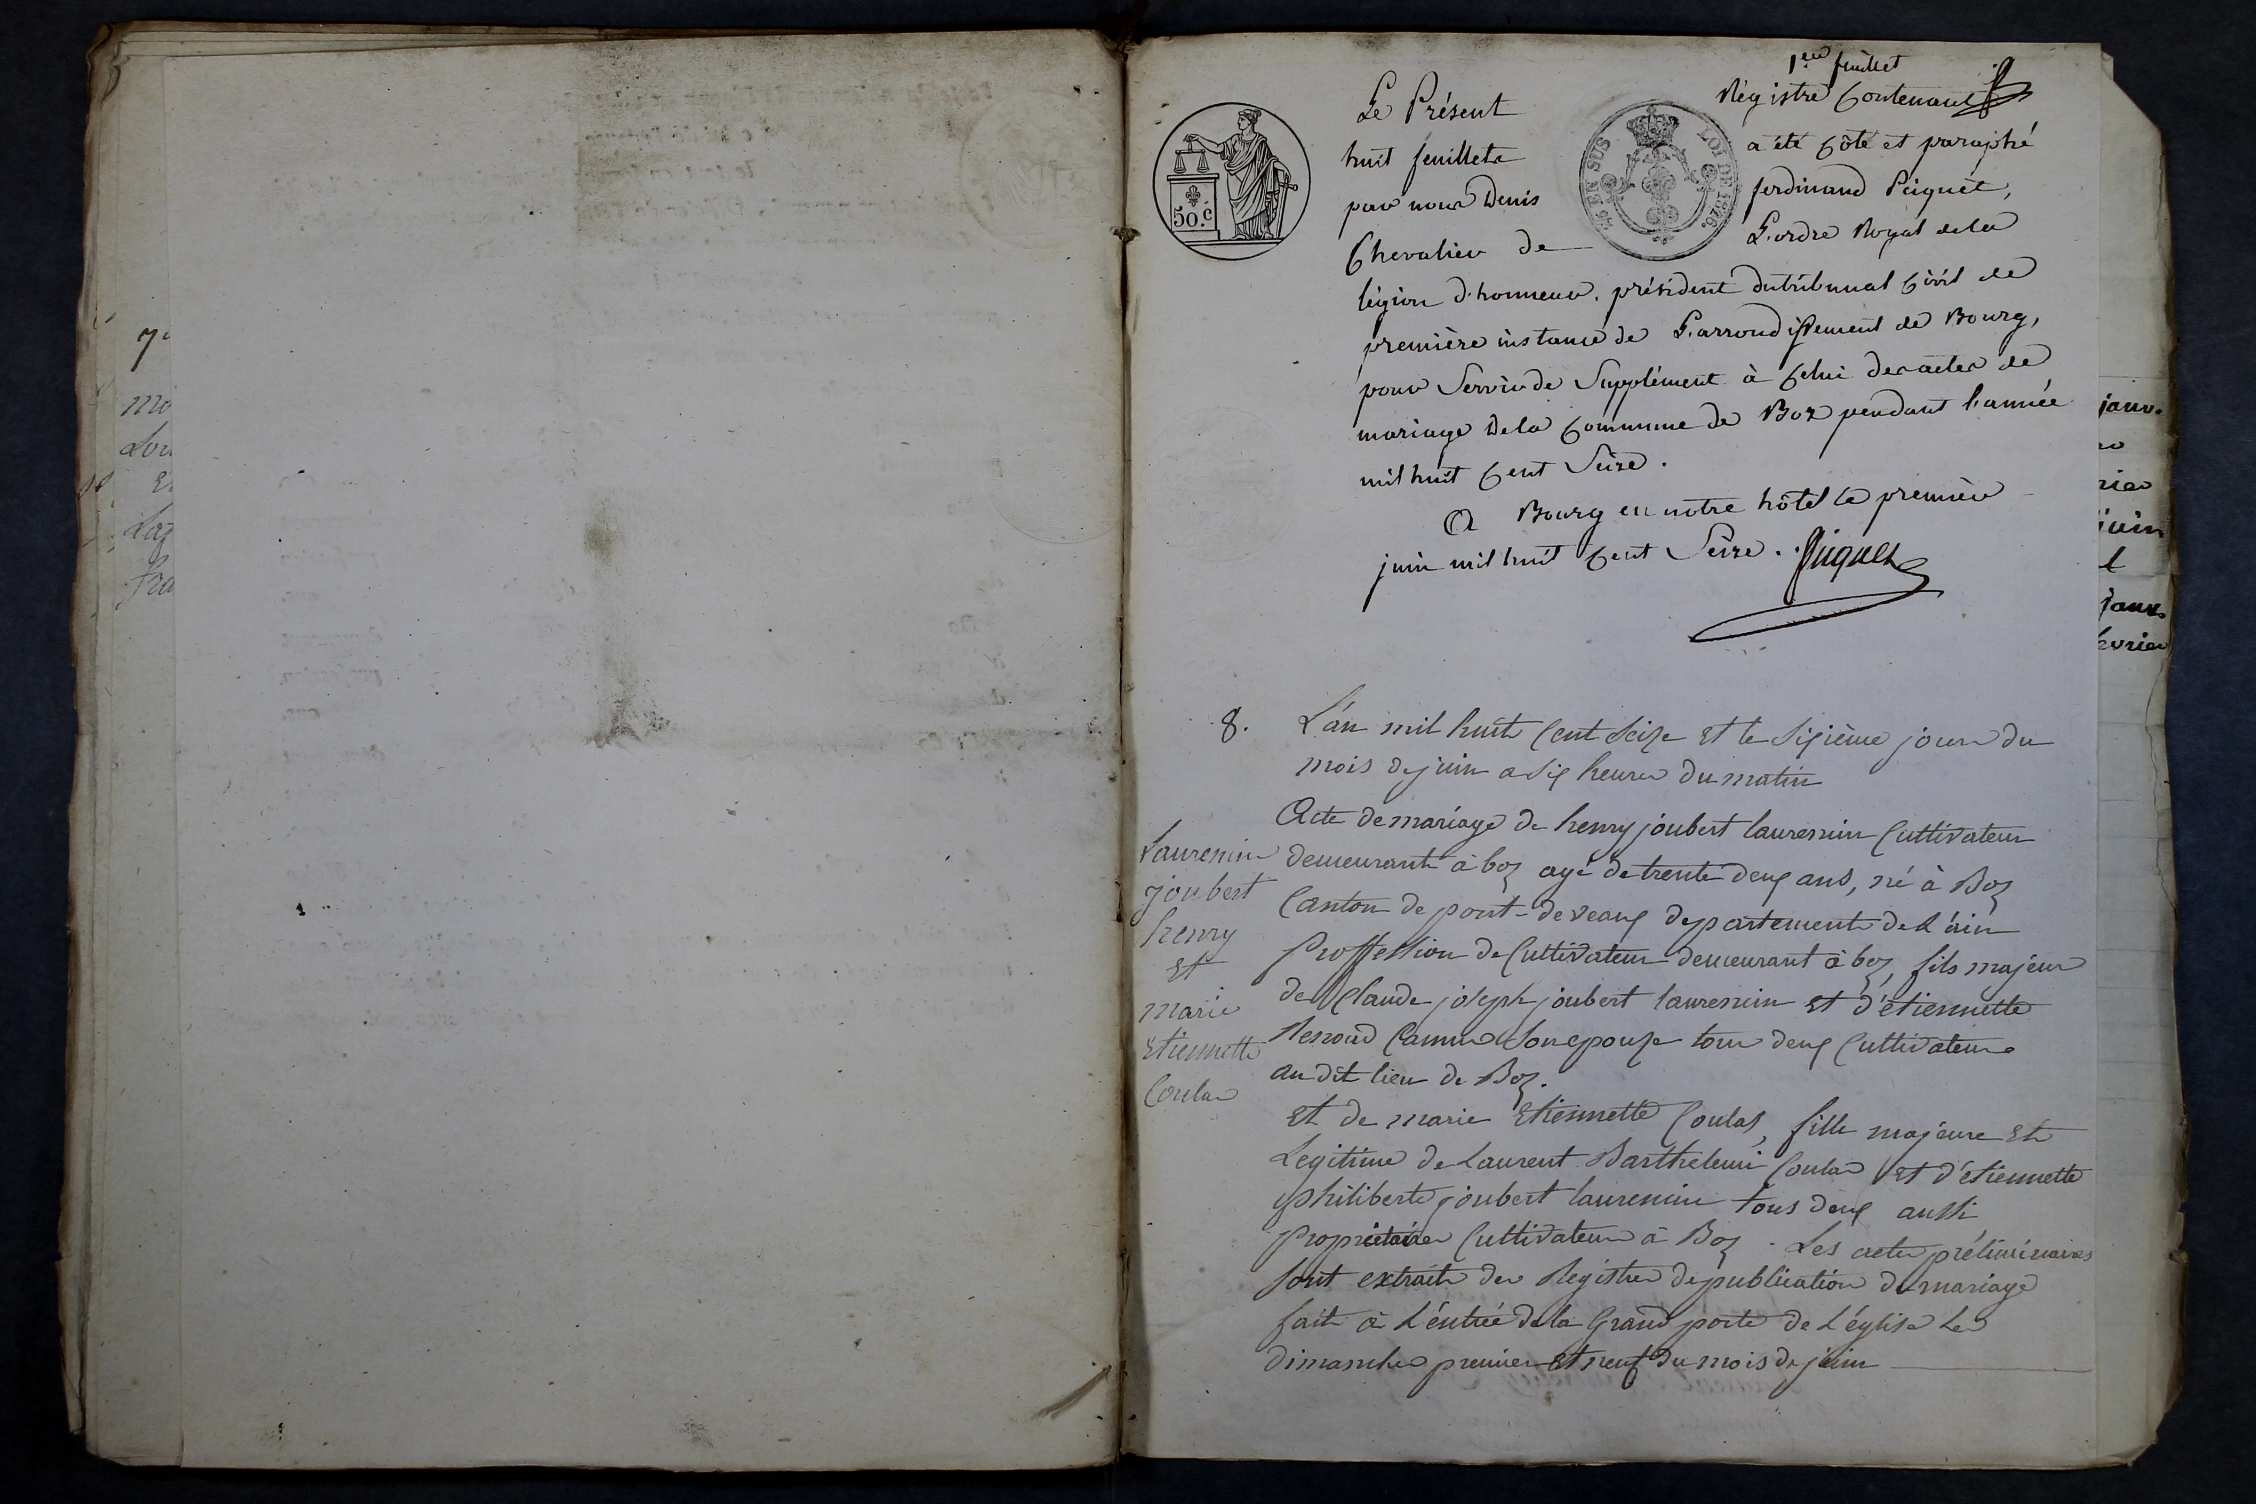 7
1ere feuillet
Le Présent Régistre Contenant
huit feuillets a été Côté et paraphé
par nous Denis ferdinand Piquet,
Chevalier de L'ordre Royal de la
légion d'honneur, président du tribunal Civil de
première instance de L'arrondissement de Bourg,
pour Servir de Supplément à Celui des actes de
mariage de la Commune de Boz pendant l'année
mil huit Cent Seize.
A Bourg en notre hôtel le premier
juin mil huit Cent Seize. Piquet
50.c
EN SUS
LOI DE 1816.
janv.
juin
janv
evrier
8.
L'an mil huit Cent Seize et le Sixième jour du
mois de juin a Six heures du matin
Acte de mariage de henry joubert laurencin Cultivateur
demeurant à boz agé de trente deux ans, né à Boz
Canton de pont-de veaux departement de L'ain
Proffession de Cultivateur demeurant à boz, fils majeur
de Claude joseph joubert laurencin et d'étiennette
Renoud Camus Son epouse tous deux Cultivateurs
au dit lieu de Boz.
et de marie Etiennette Coulas, fille majeure et
Legitime de Laurent Barthelemi Coulas et d'étiennette
philiberte joubert laurencin tous deux aussi
propriétaires Cultivateurs à Boz. Les actes préliminaires
Sont extraits des Registres de publication de mariage
fait à L'éntrée de la Grand porte de L'église Les
dimanches premier et neuf du mois de juin
Laurencin
joubert
henry
et
marie
etiennette
Coulas